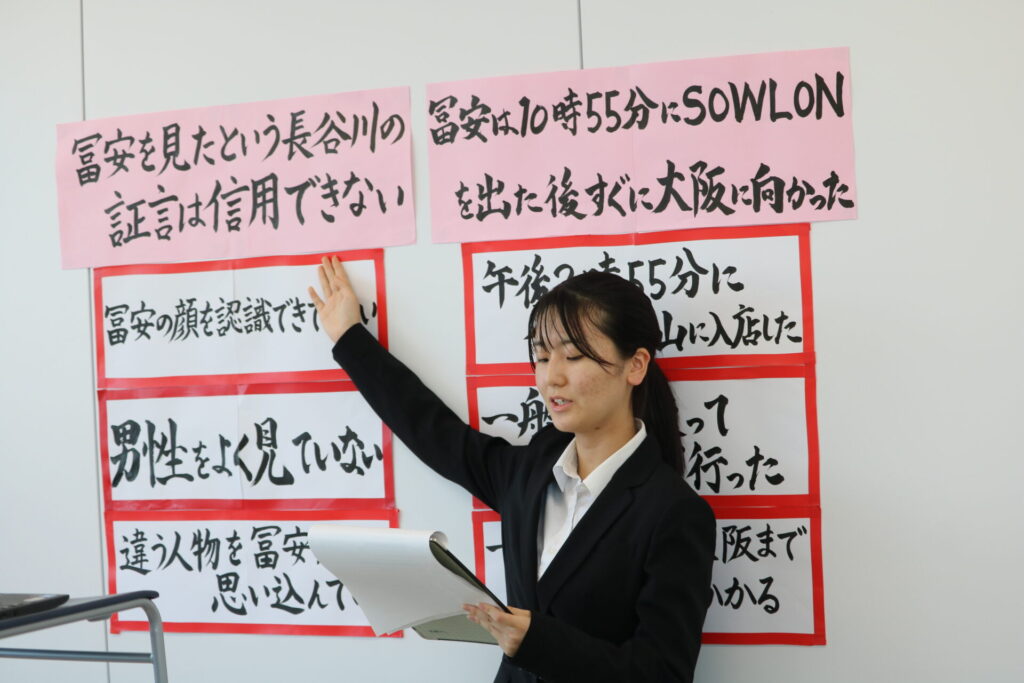 冨安を見たという長谷川の
証言は信用できない
冨安の顔を認識でき い
男性をよく見ていない
違う人物を冨安
思い込んで
冨安は10時55分にSOWLON
を出た後すぐに大阪に向かった
午後 時55分に
山に入店した
一般 って
行った
阪まで
かかる